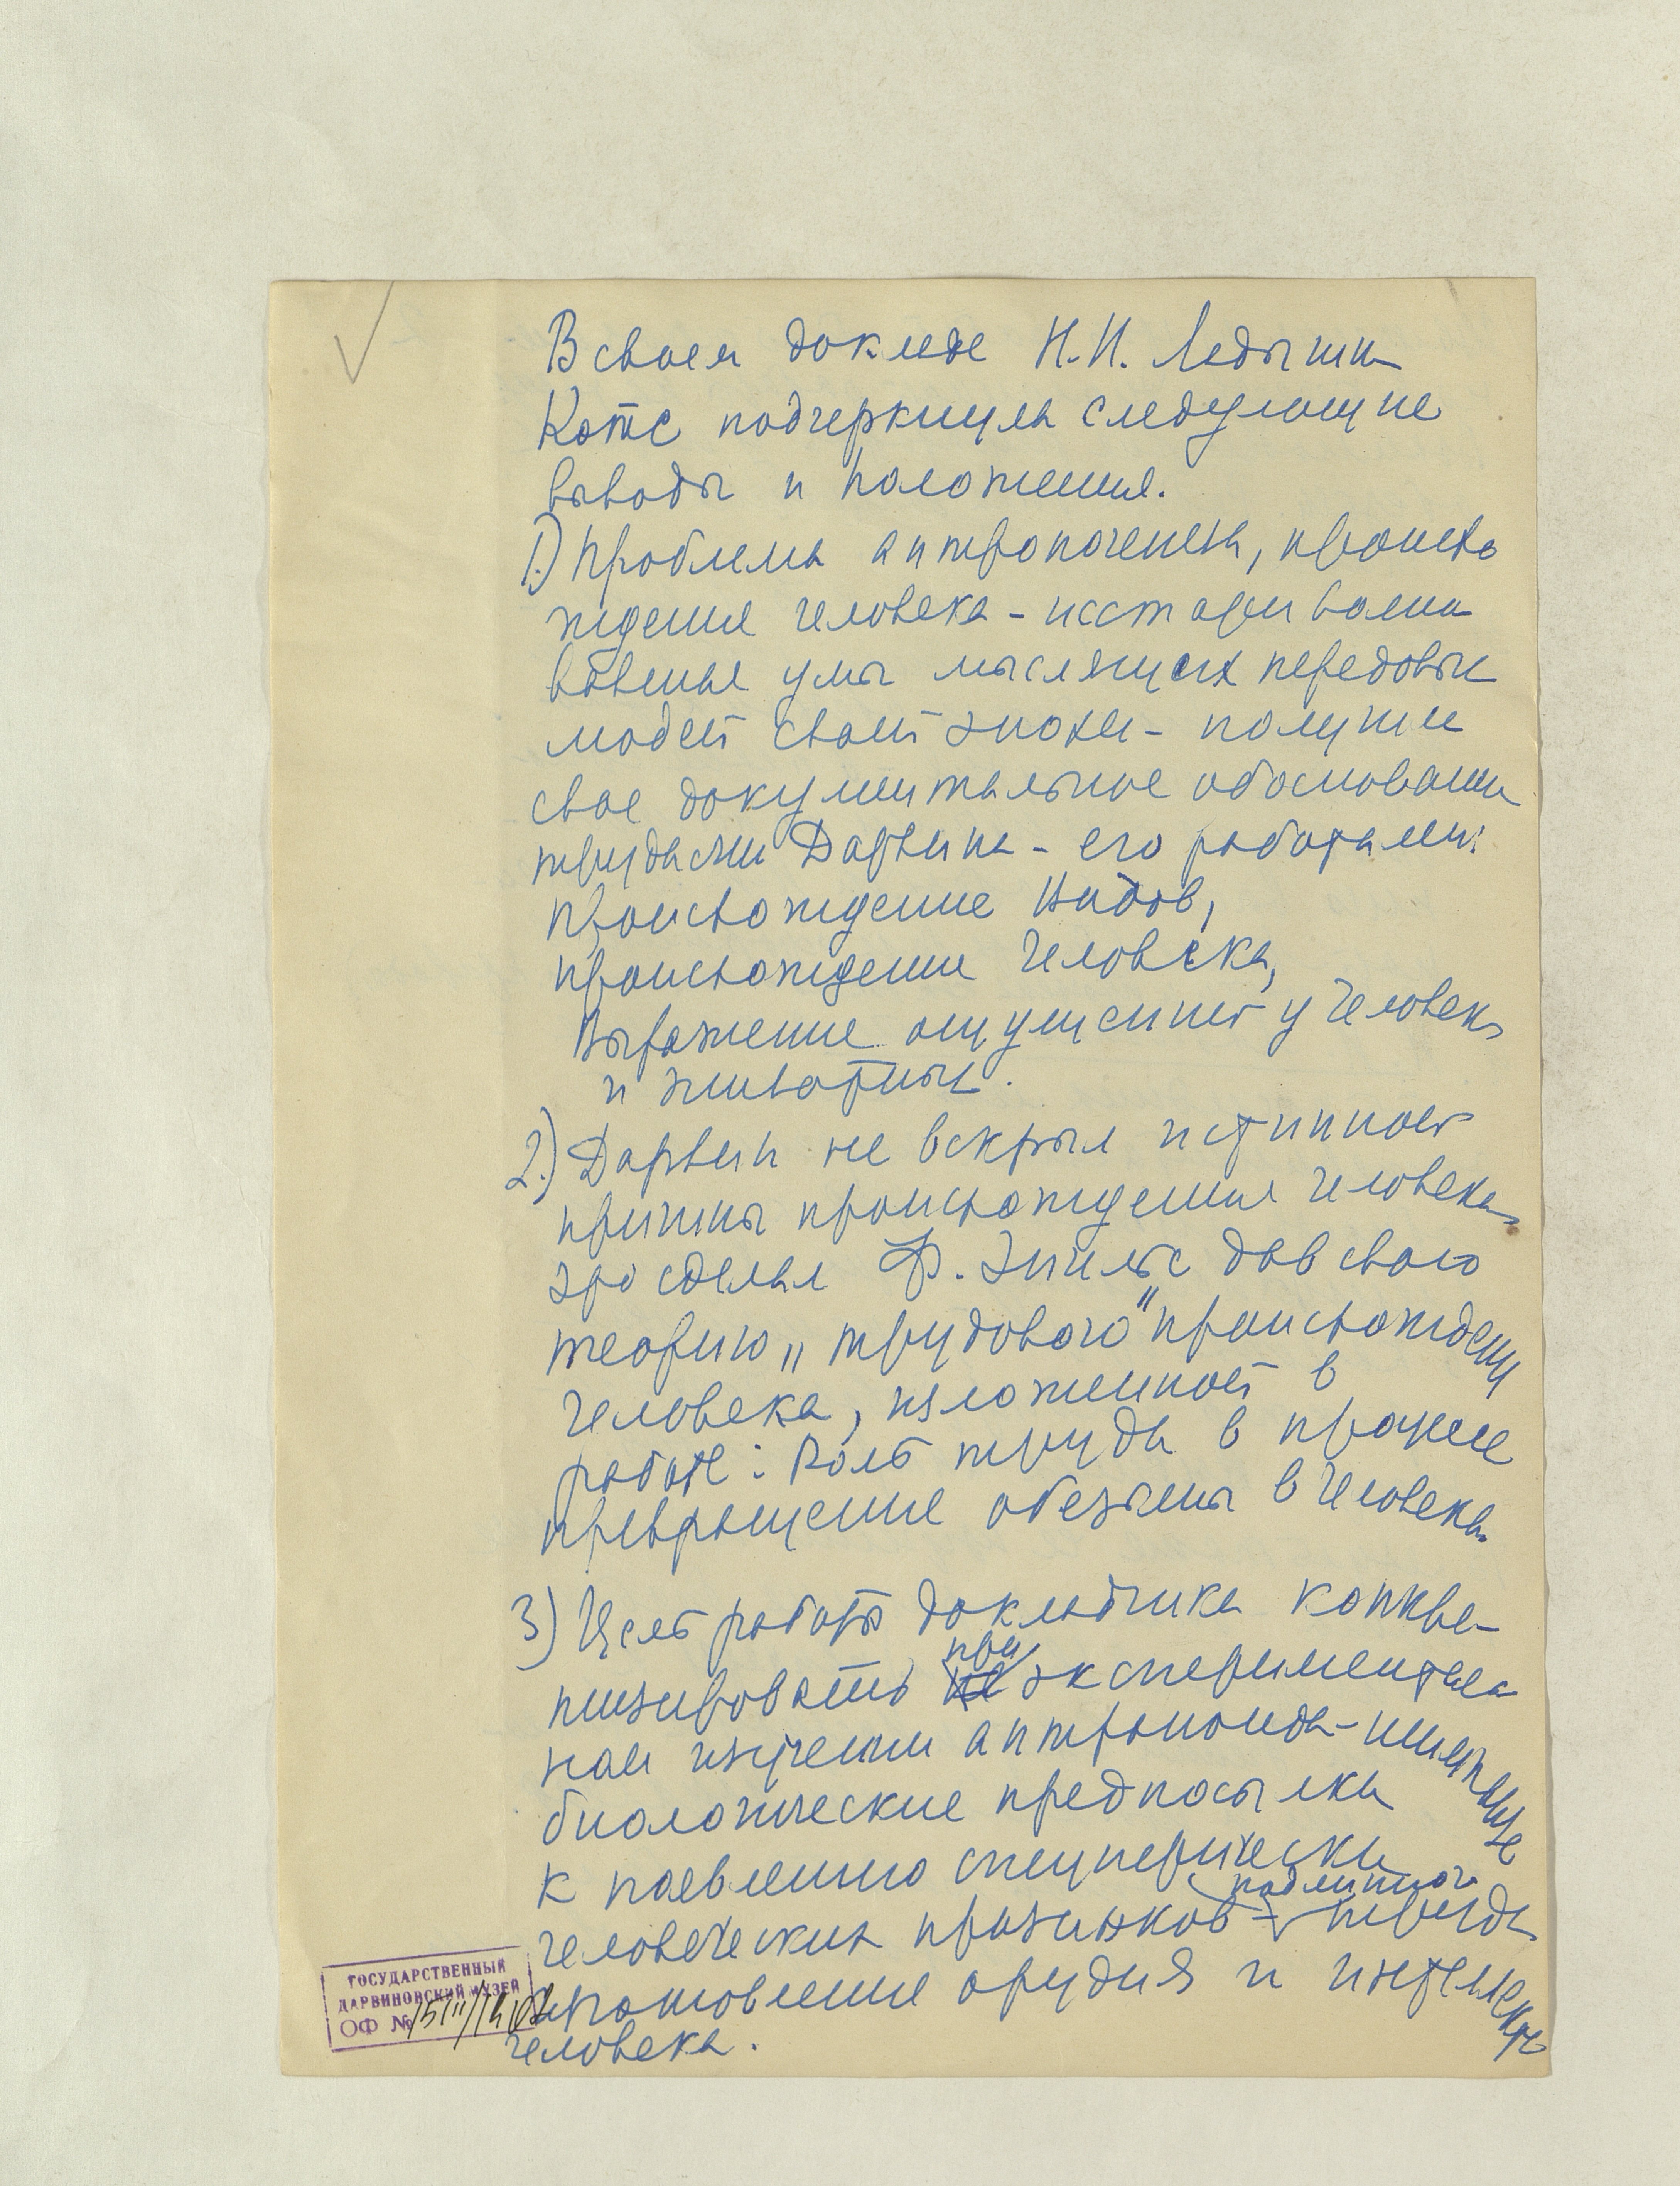 В своем докладе Н.Н. Ладыгина
Котс подчеркнула следующие
выводы и положения.
1.) Проблема антропогенеза, происхо
ждения человека - исстари волно
вавшая умы мыслящих передовых
людей своей эпохи - получила
свое документальное обоснование
трудами Дарвина - его работами:
Происхождение Видов,
происхождение Человека,
Выражение ощущений у человека
и животных.
2.) Дарвин не вскрыл истинной
причины происхождения человека
это сделал Ф. Энгельс дав свою
теорию „трудового" происхождения
человека, изложенной в
работе: Роль труда в процессе
превращения обезьяны в человека.
3) Цель работы докладчика конкре-
тизировать при эксперименталь
ном изучении антропоида - шимпанзе
биологические предпосылки
к появлению специфически
человеческих признаков - подлинного труда
изготовление орудия и интеллекта
человека.
ГОСУДАРСТВЕННЫЙ
ДАРВИНОВСКИЙ МУЗЕЙ
ОФ №